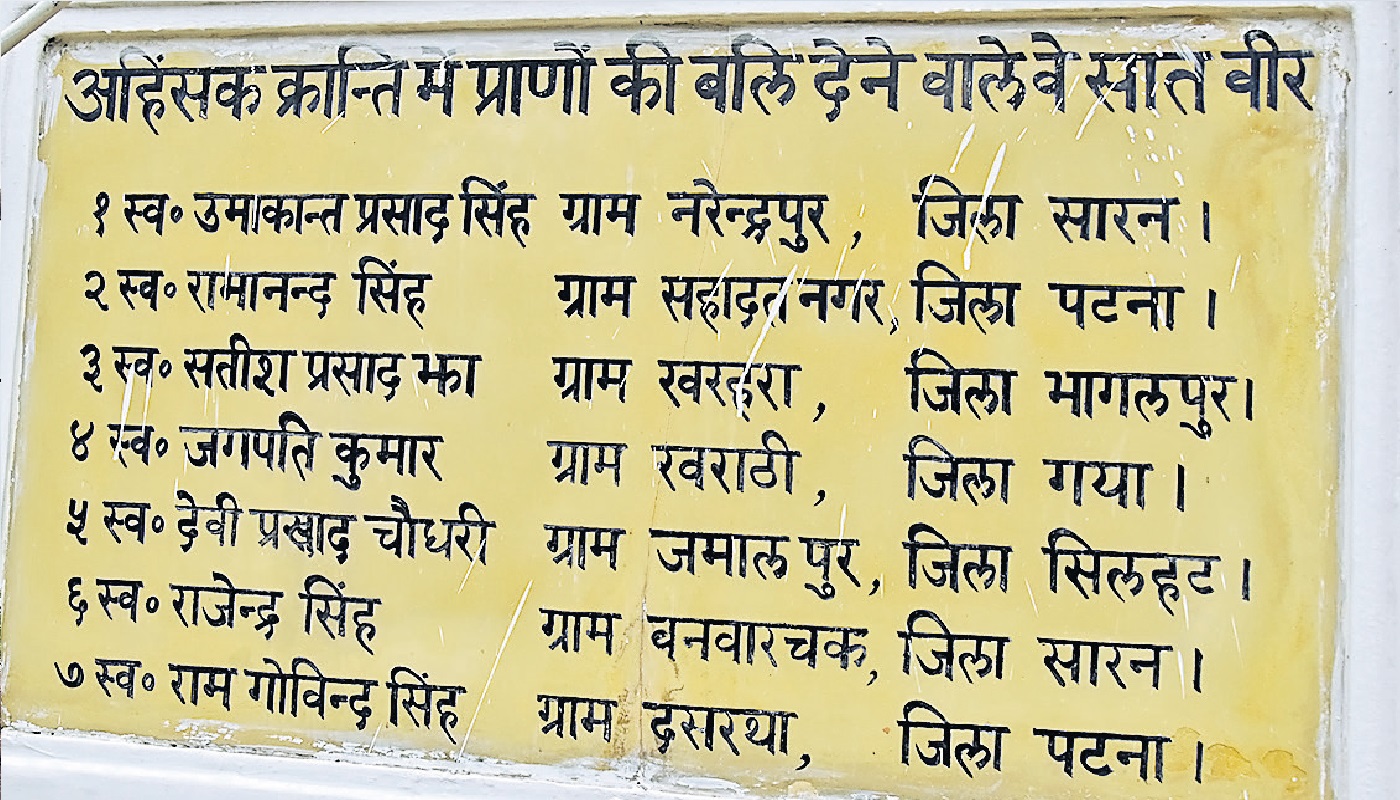 अहिंसक क्रान्ति में प्राणों की बलि देने वाले वे सात वीर
१ स्व॰ उमाकान्त प्रसाद सिंह ग्राम नरेन्द्रपुर, जिला सारन।
२ स्व॰ रामानन्द सिंह ग्राम सहादत नगर, जिला पटना।
३ स्व॰ सतीश प्रसाद झा ग्राम खरहरा, जिला भागलपुर।
४ स्व॰ जगपति कुमार ग्राम खराठी, जिला गया।
५ स्व॰ देवी प्रसाद चौधरी ग्राम जमालपुर, जिला सिलहट।
६ स्व॰ राजेन्द्र सिंह ग्राम बनवारचक, जिला सारन।
७ स्व॰ राम गोविन्द सिंह ग्राम दसरथा, जिला पटना।